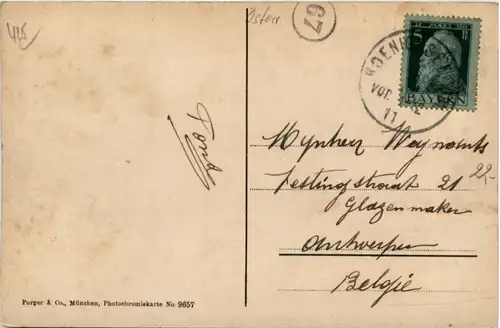 418
Östen
67
5
BAYERN
VOR
11
Mynheer Weynants
Vestingstraat 21
Glazenmaker
Antwerpen
Belgie
22,-
Fond
Purger & Co., München, Photochromiekarte No. 9657